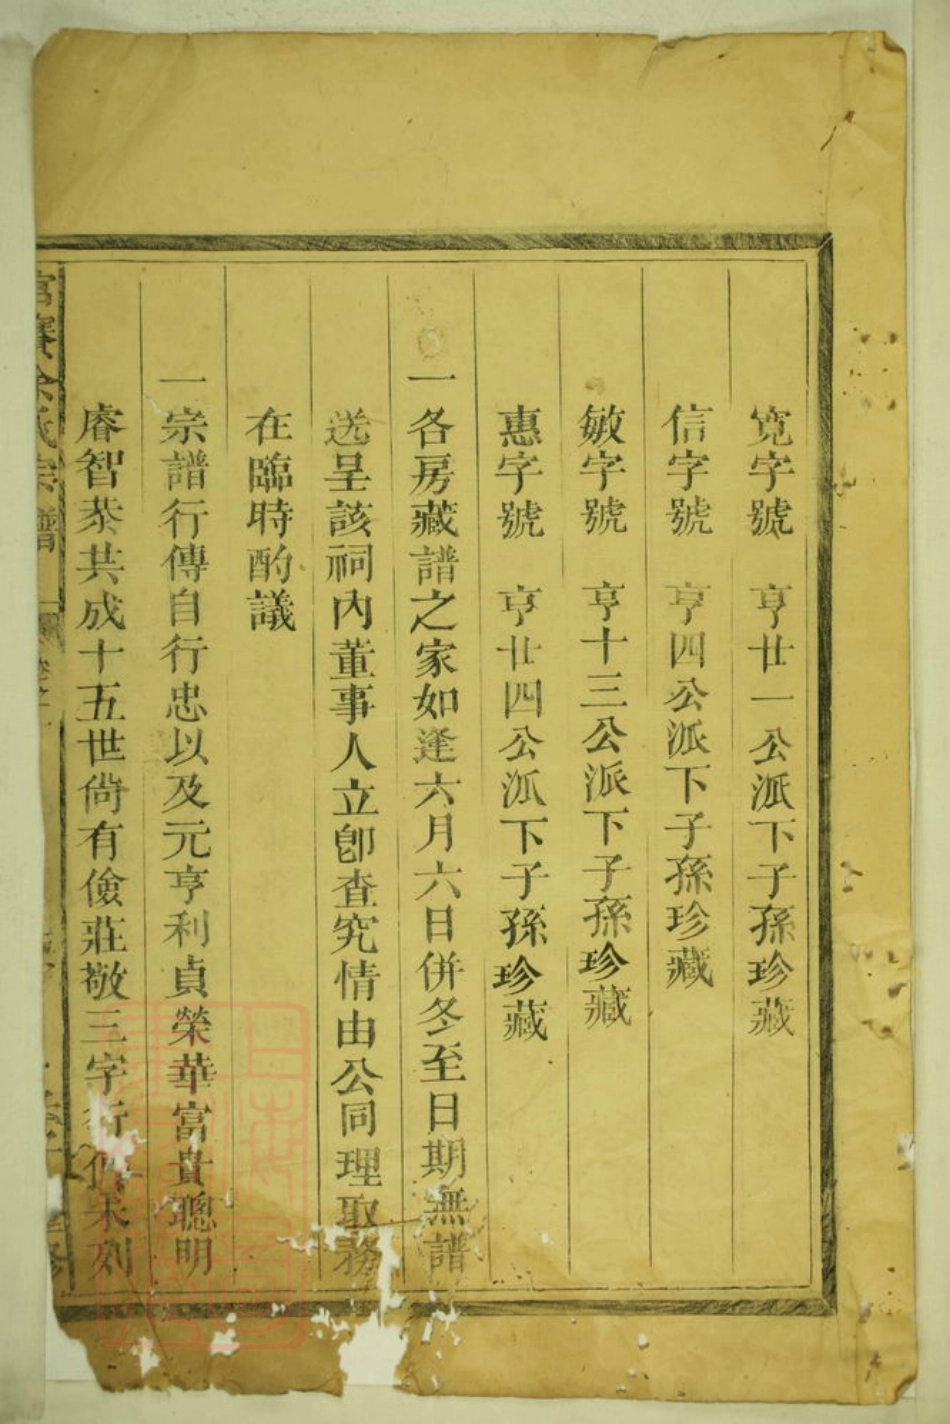 寬字號 亨廿一公派下子孫珍藏
信字號 亨四公派下子孫珍藏
敏字號 亨十三公派下子孫珍藏
惠字號 亨廿四公派下子孫珍藏
一各房藏譜之家如逢六月六日併冬至日期無譜
送呈該祠內董事人立卽查究情由公同理取務
在臨時酌議
一宗譜行傳自行忠以及元亨利貞榮華富貴聰明
睿智恭共成十五世尙有儉莊敬三字行傳未刻
氏宗譜